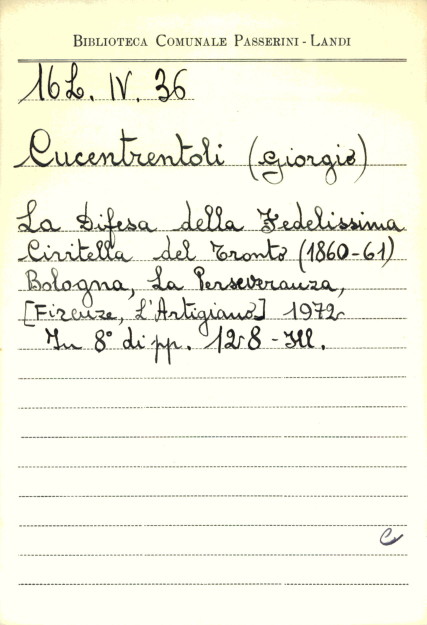 BIBLIOTECA COMUNALE PASSERINI - LANDI
16L. IV. 36
Cucentrentoli (Giorgio)
La Difesa della Fedelissima
Civitella del Tronto (1860-61)
Bologna, La Perseveranza,
[Firenze, L'Artigiano] 1972
In 8° di pp. 128 - Ill.
C